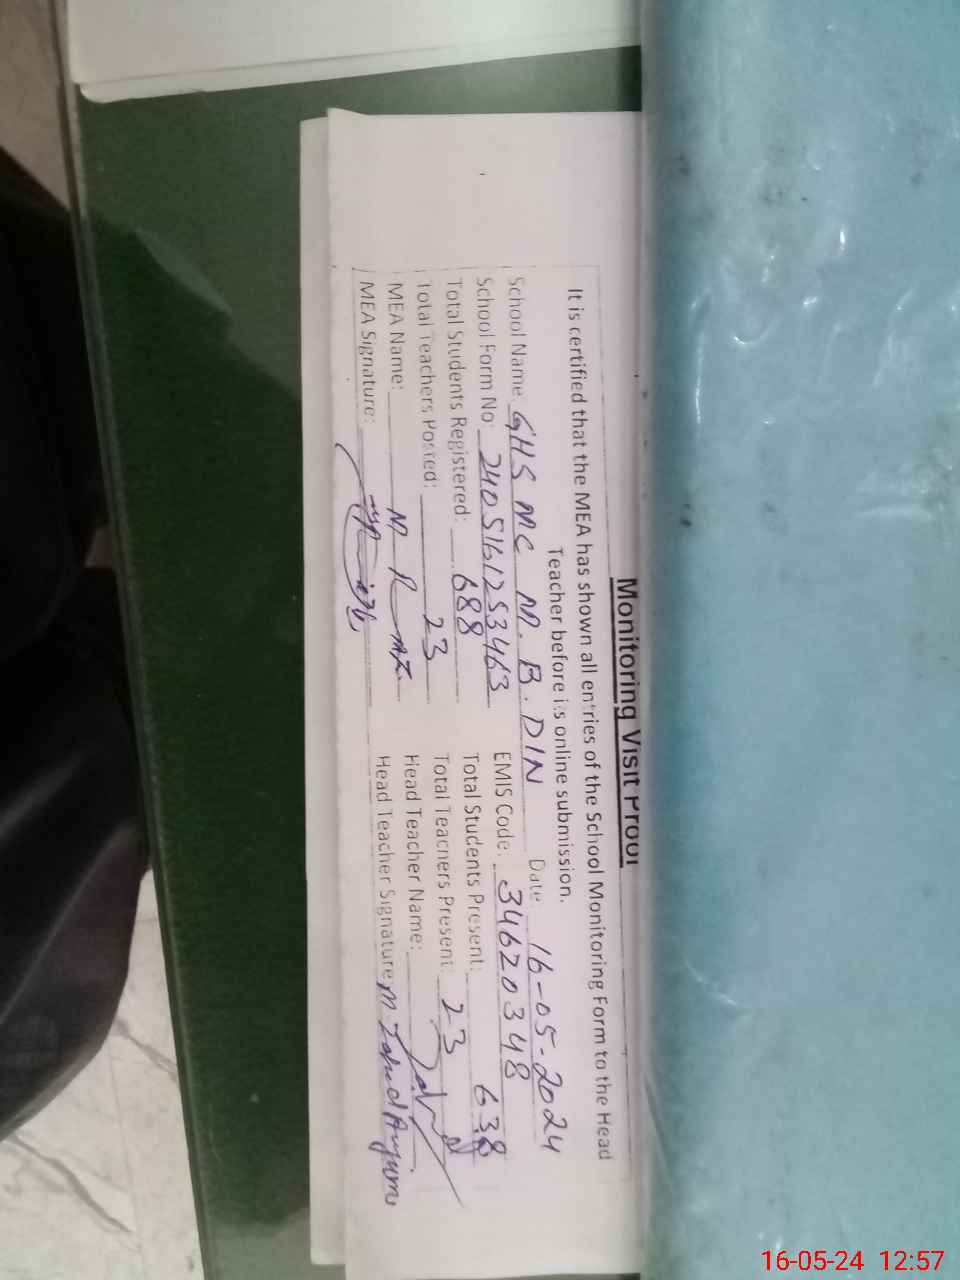 Monitoring Visit Proof
It is certified that the MEA has shown all entries of the School Monitoring Form to the Head
Teacher before its online submission.
School Name: GHS MC M.B.DIN Date: 16-05-2024
School Form No: 2405161253463 EMIS Code: 34620348
Total Students Registered: 688 Total Students Present: 638
Total Teachers Posted: 23 Total Teachers Present: 23
MEA Name: Head Teacher Name:
MEA Signature: Head Teacher Signature M
16-05-24 12:57